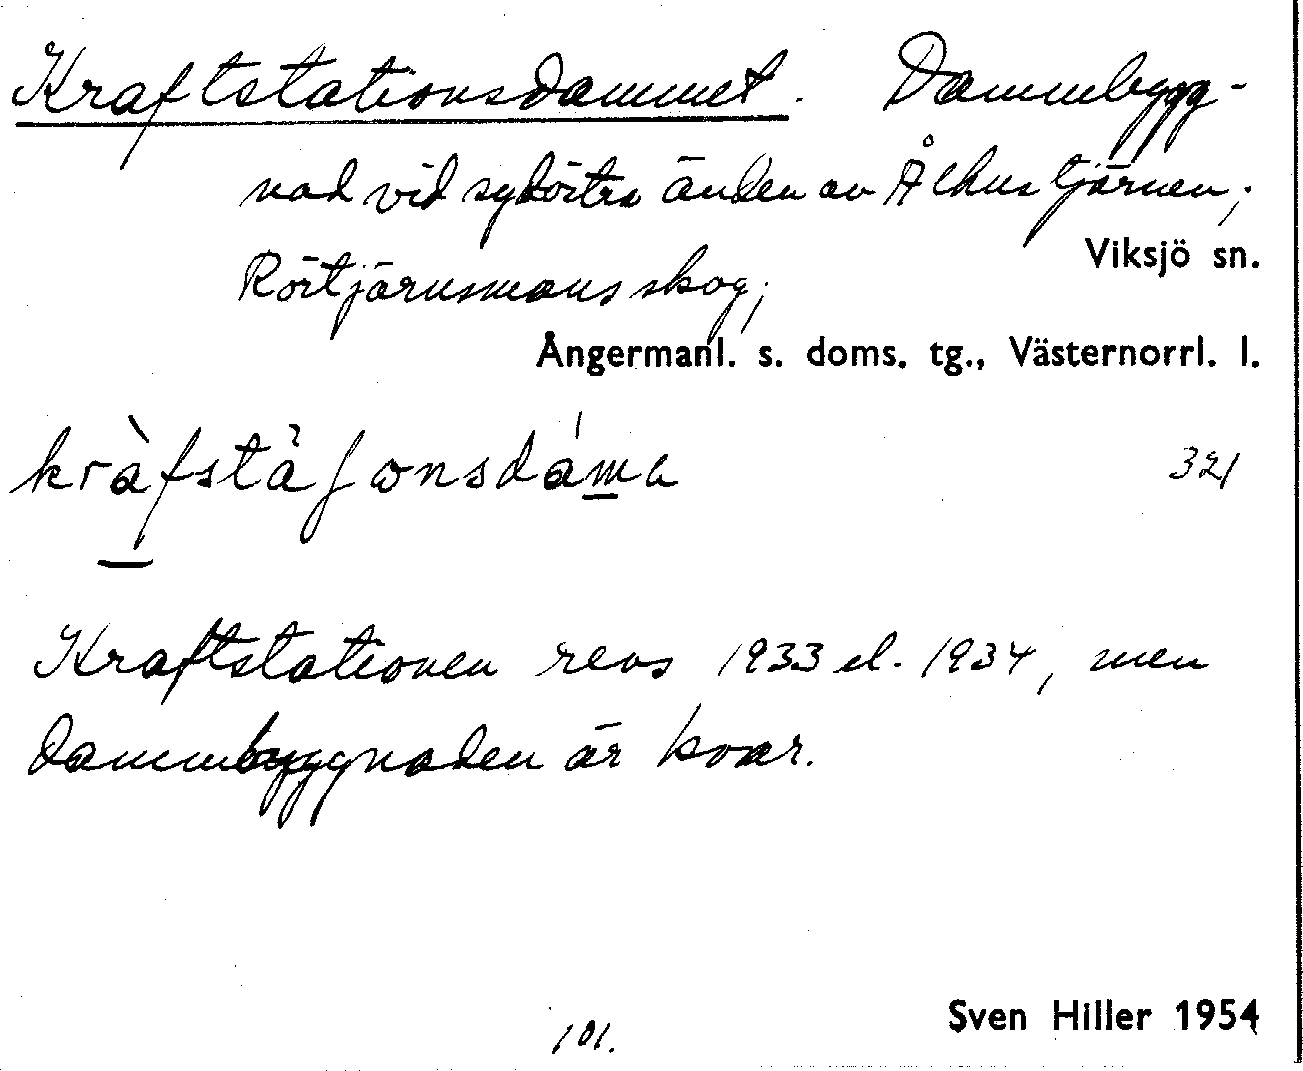 Kraftstationsdammet. Dammbygg-
nad vid sydöstra änden av Ålhustjärnen;
Viksjö sn.
Rörtjärnsmons skog;
Ångermanl. s. doms. tg., Västernorrl. l.
kràfstàʃonsdáma
321
Kraftstationen revs 1933 el. 1934, men
dammbyggnaden är kvar.
Sven Hiller 1954
101.